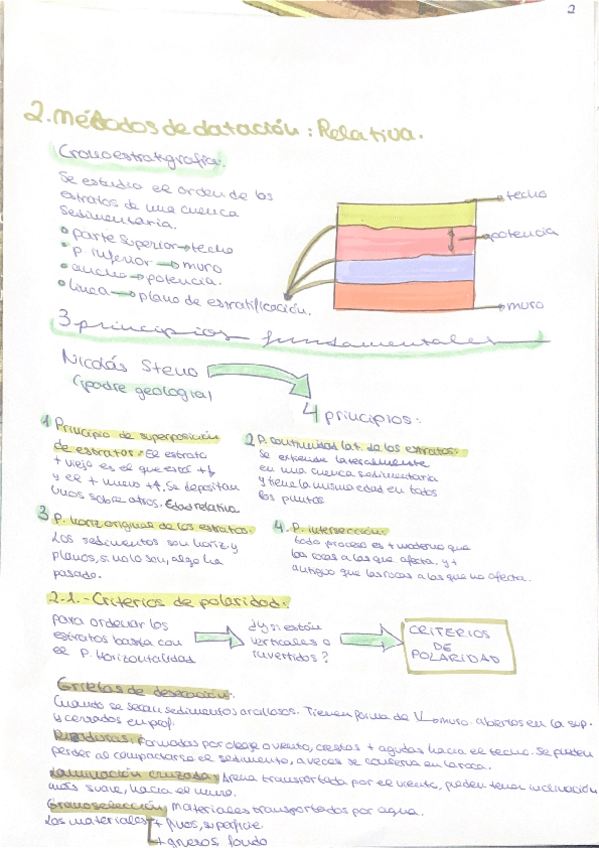 2
2. Métodos de datación: Relativa.
Cronoestratigrafía.
Se estudia el orden de los
estratos de una cuenca
sedimentaria.
• parte superior → techo
• p inferior → muro
• ancho → potencia.
• línea → plano de estratificación.
techo
potencia
muro
3 principios fundamentales
Nicolás Steno
(padre geología)
4 principios:
1 Principio de superposición
de estratos: El estrato
+ viejo es el que está + b
y el + nuevo + A. Se depositan
unos sobre otros. Edad relativa
2 P. continuidad lat. de los estratos:
Se extiende lateralmente
en una cuenca sedimentaria
y tiene la misma edad en todos
los puntos
3 P. horiz original de los estratos.
Los sedimentos son horiz. y
planos, si no lo son, algo ha
pasado.
4. P. intersección:
todo proceso es + moderno que
las rocas a las que afecta, y +
antiguo que las rocas a las que no afecta.
2.1.- Criterios de polaridad:
para ordenar los
estratos basta con
el P. Horizontalidad
¿y si están
verticales o
invertidos?
CRITERIOS
DE
POLARIDAD
Grietas de desecación:
Cuando se secan sedimentos arcillosos. Tienen forma de V → muro. abiertos en la sup.
y cerrados en prof.
formadas por oleaje o viento, crestas + agudas hacia el techo. Se pueden
perder al compactarse el sedimento, a veces se conserva en la roca.
Laminación cruzada: Arena transportada por el viento, pueden tener inclinación
más suave, hacia el muro.
Granoselección: materiales transportados por agua.
Los materiales + finos, superficie.
+ gruesos fondo